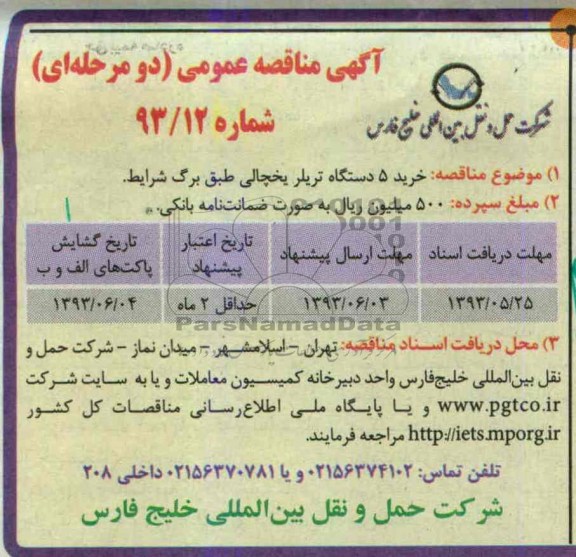 آگهی مناقصه عمومی (دو مرحله‌ای)
شماره ۹۳/۱۲
شرکت حمل و نقل بین المللی خلیج فارس
۱) موضوع مناقصه: خرید ۵ دستگاه تریلر یخچالی طبق برگ شرایط.
۲) مبلغ سپرده: ۵۰۰ میلیون ریال به صورت ضمانت‌نامه بانکی.
مهلت دریافت اسناد مهلت ارسال پیشنهاد تاریخ اعتبار پیشنهاد تاریخ گشایش پاکت‌های الف و ب
۱۳۹۳/۰۵/۲۵ ۱۳۹۳/۰۶/۰۳ حداقل ۲ ماه ۱۳۹۳/۰۶/۰۴
ParsNamadData
۳) محل دریافت اسناد مناقصه: تهران – اسلامشهر – میدان نماز – شرکت حمل و
نقل بین‌المللی خلیج‌فارس واحد دبیرخانه کمیسیون معاملات و یا به سایت شرکت
www.pgtco.ir و یا پایگاه ملی اطلاع‌رسانی مناقصات کل کشور
http://iets.mporg.ir مراجعه فرمایند.
تلفن تماس: ۰۲۱۵۶۳۷۴۱۰۲ و یا ۰۲۱۵۶۳۷۰۷۸۱ داخلی ۲۰۸
شرکت حمل و نقل بین‌المللی خلیج فارس